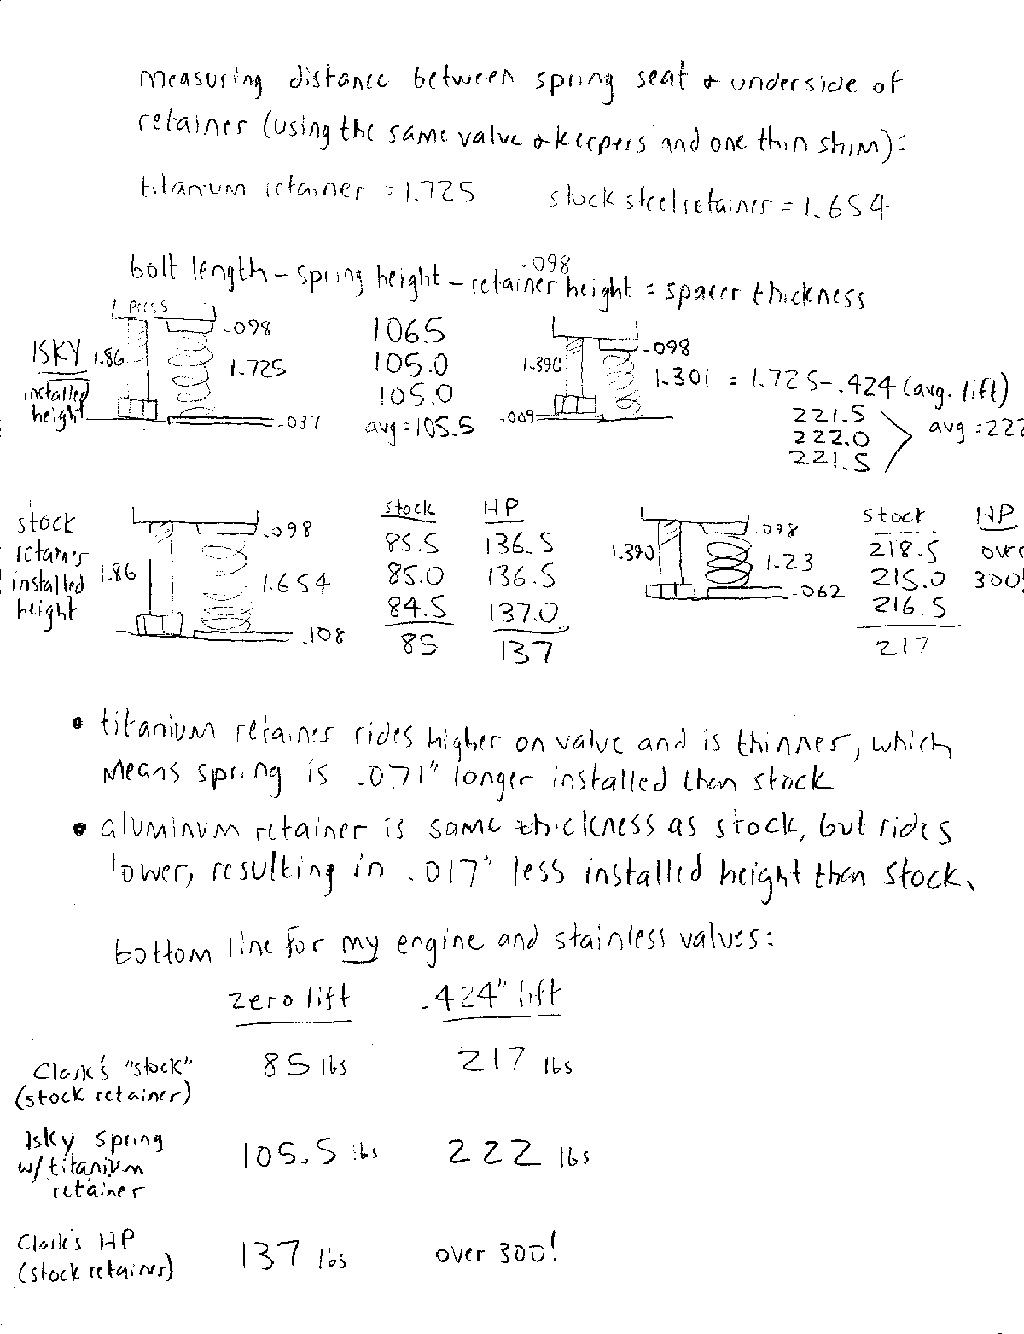 measuring distance between spring seat & underside of
retainer (using the same valve & keepers and one thin shim):
titanium retainer = 1.725 stock steel retainer = 1.654
-.098
bolt length - spring height - retainer height = spacer thickness
press
ISKY
installed
height
1.86
.098
1.725
.037
106.5
105.0
105.0
avg = 105.5
1.390
.009
.098
1.301 = 1.725-.424 (avg. lift)
221.5
222.0
221.5
avg = 222
stock
retainers
installed
height
1.86
.098
1.654
.108
stock HP
85.5 136.5
85.0 136.5
84.5 137.0
85 137
1.390
.098
1.23
.062
stock HP
218.5 over
215.0 300!
216.5
217
• titanium retainer rides higher on valve and is thinner, which
means spring is .071" longer installed than stock
• aluminum retainer is same thickness as stock, but rides
lower, resulting in .017" less installed height than stock.
bottom line for my engine and stainless valves:
zero lift .424" lift
Clark's "stock" 85 lbs 217 lbs
(stock retainer)
Isky spring
w/ titanium 105.5 lbs 222 lbs
retainer
Clark's HP 137 lbs over 300!
(stock retainer)